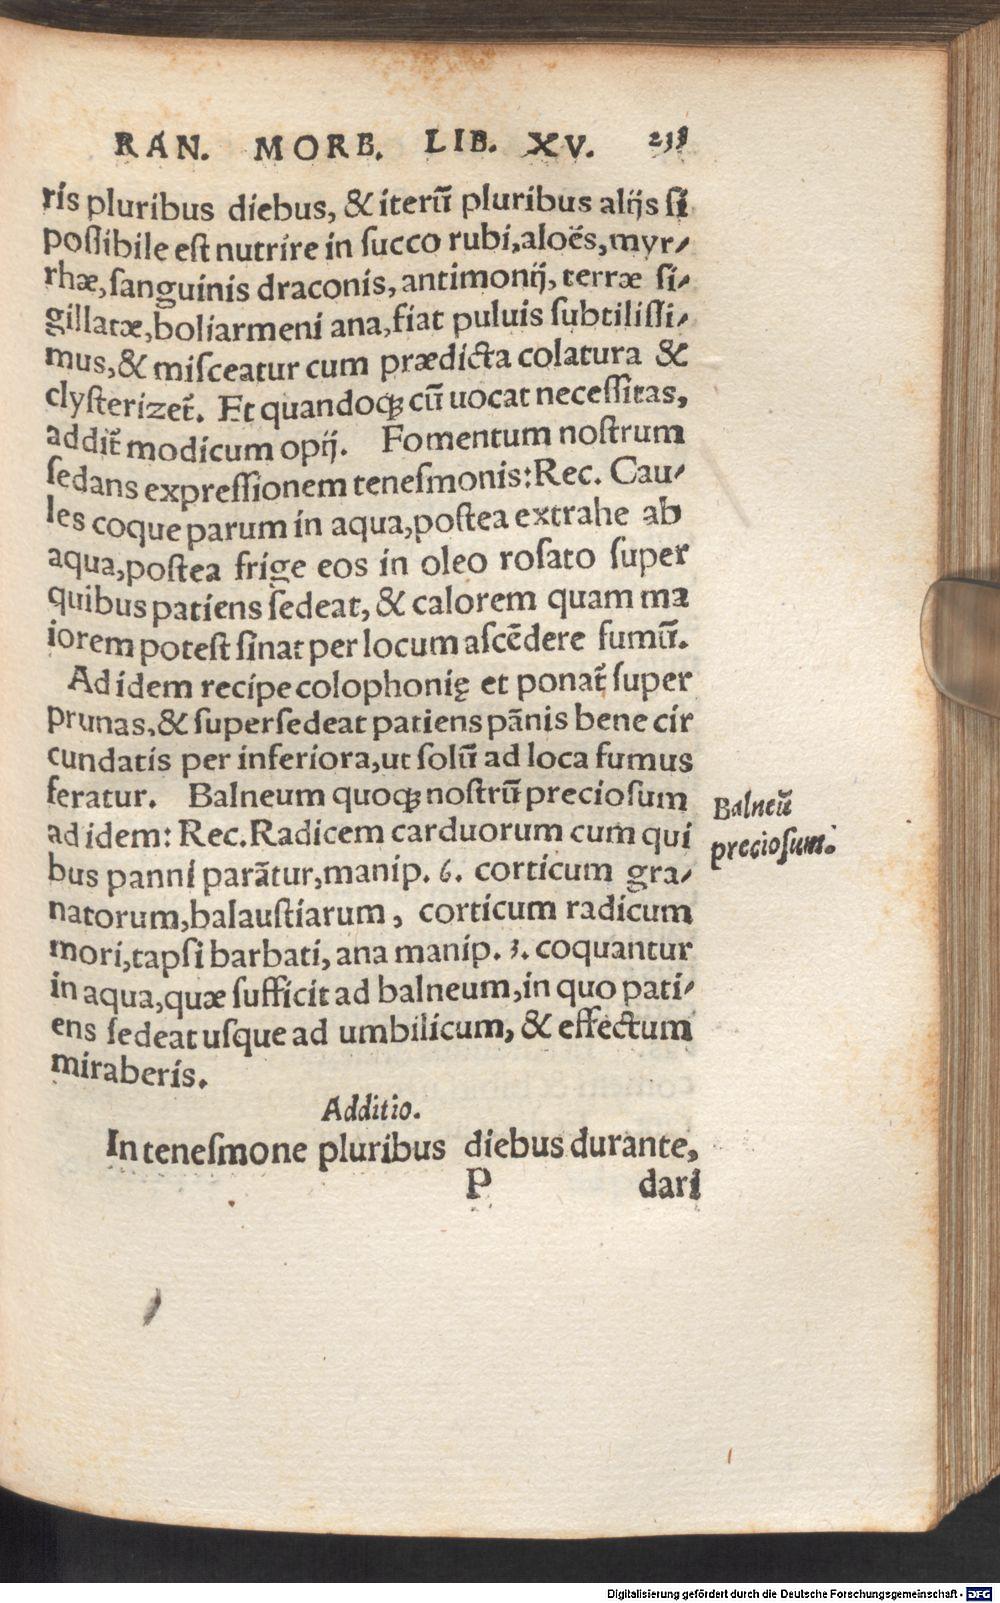 RAN. MORB. LIB. XV. 233
ris pluribus diebus, & iterū pluribus alijs si
possibile est nutrire in succo rubi, aloës, myr-
rhæ, sanguinis draconis, antimonij, terræ si-
gillatæ, boliarmeni ana, fiat puluis subtilissi-
mus, & misceatur cum prædicta colatura &
clysterizet̃. Et quandoq; cū uocat necessitas,
addit̃ modicum opij. Fomentum nostrum
sedans expressionem tenesmonis: Rec. Cau-
les coque parum in aqua, postea extrahe ab
aqua, postea frige eos in oleo rosato super
quibus patiens sedeat, & calorem quam ma
iorem potest sinat per locum ascēdere fumū.
Ad idem recipe colophonię et ponat̃ super
prunas, & supersedeat patiens pānis bene cir
cundatis per inferiora, ut solū ad loca fumus
feratur. Balneum quoq; nostrū preciosum
ad idem: Rec. Radicem carduorum cum qui
bus panni parātur, manip. 6. corticum gra-
natorum, balaustiarum, corticum radicum
mori, tapsi barbati, ana manip. 3. coquantur
in aqua, quæ sufficit ad balneum, in quo pati-
ens sedeat usque ad umbilicum, & effectum
miraberis.
Balneū
preciosum.
Additio.
In tenesmone pluribus diebus durante,
P dari
Digitalisierung gefördert durch die Deutsche Forschungsgemeinschaft - DFG